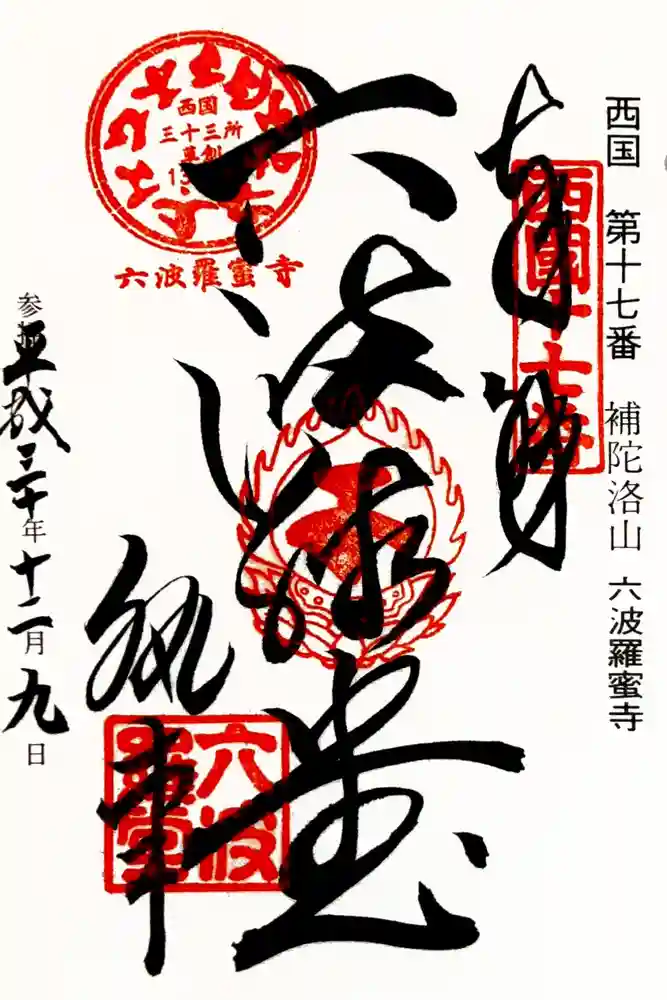 西国 第十七番 補陀洛山 六波羅蜜寺
奉拝
西國十七番
西国
三十三所
草創
六波羅蜜寺
六波羅堂
執事
六波
羅堂
参拝
平成三十年十二月九日